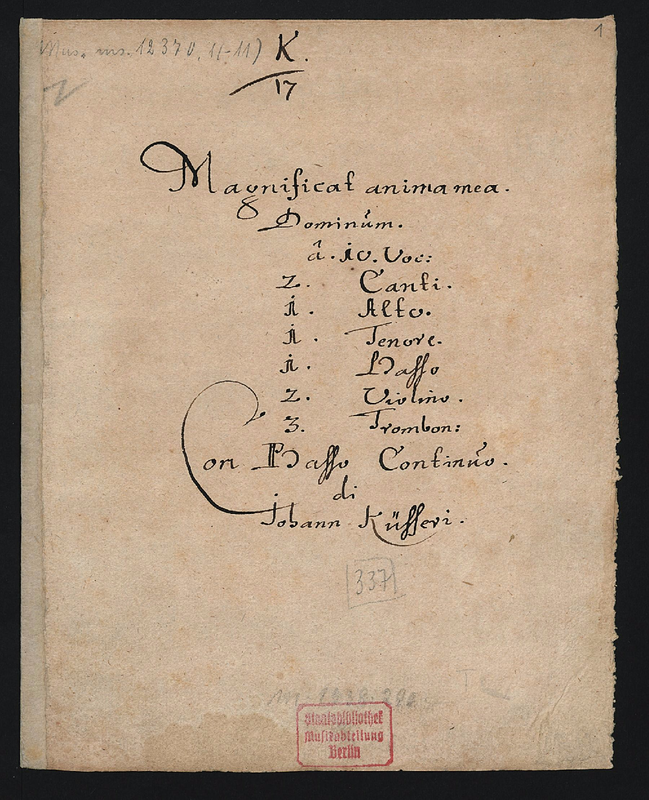 Mus. ms. 12370, 11-11)
K.
17
1
Magnificat anima mea.
Dominům.
â. io. Voc:
2. Canti.
i. Alto.
i. Tenore.
i. Basso
2. Violino.
3. Trombon:
Con Basso Continůo.
di
Johann Küsseri.
337
Staatsbibliothek
Musikabteilung
Berlin